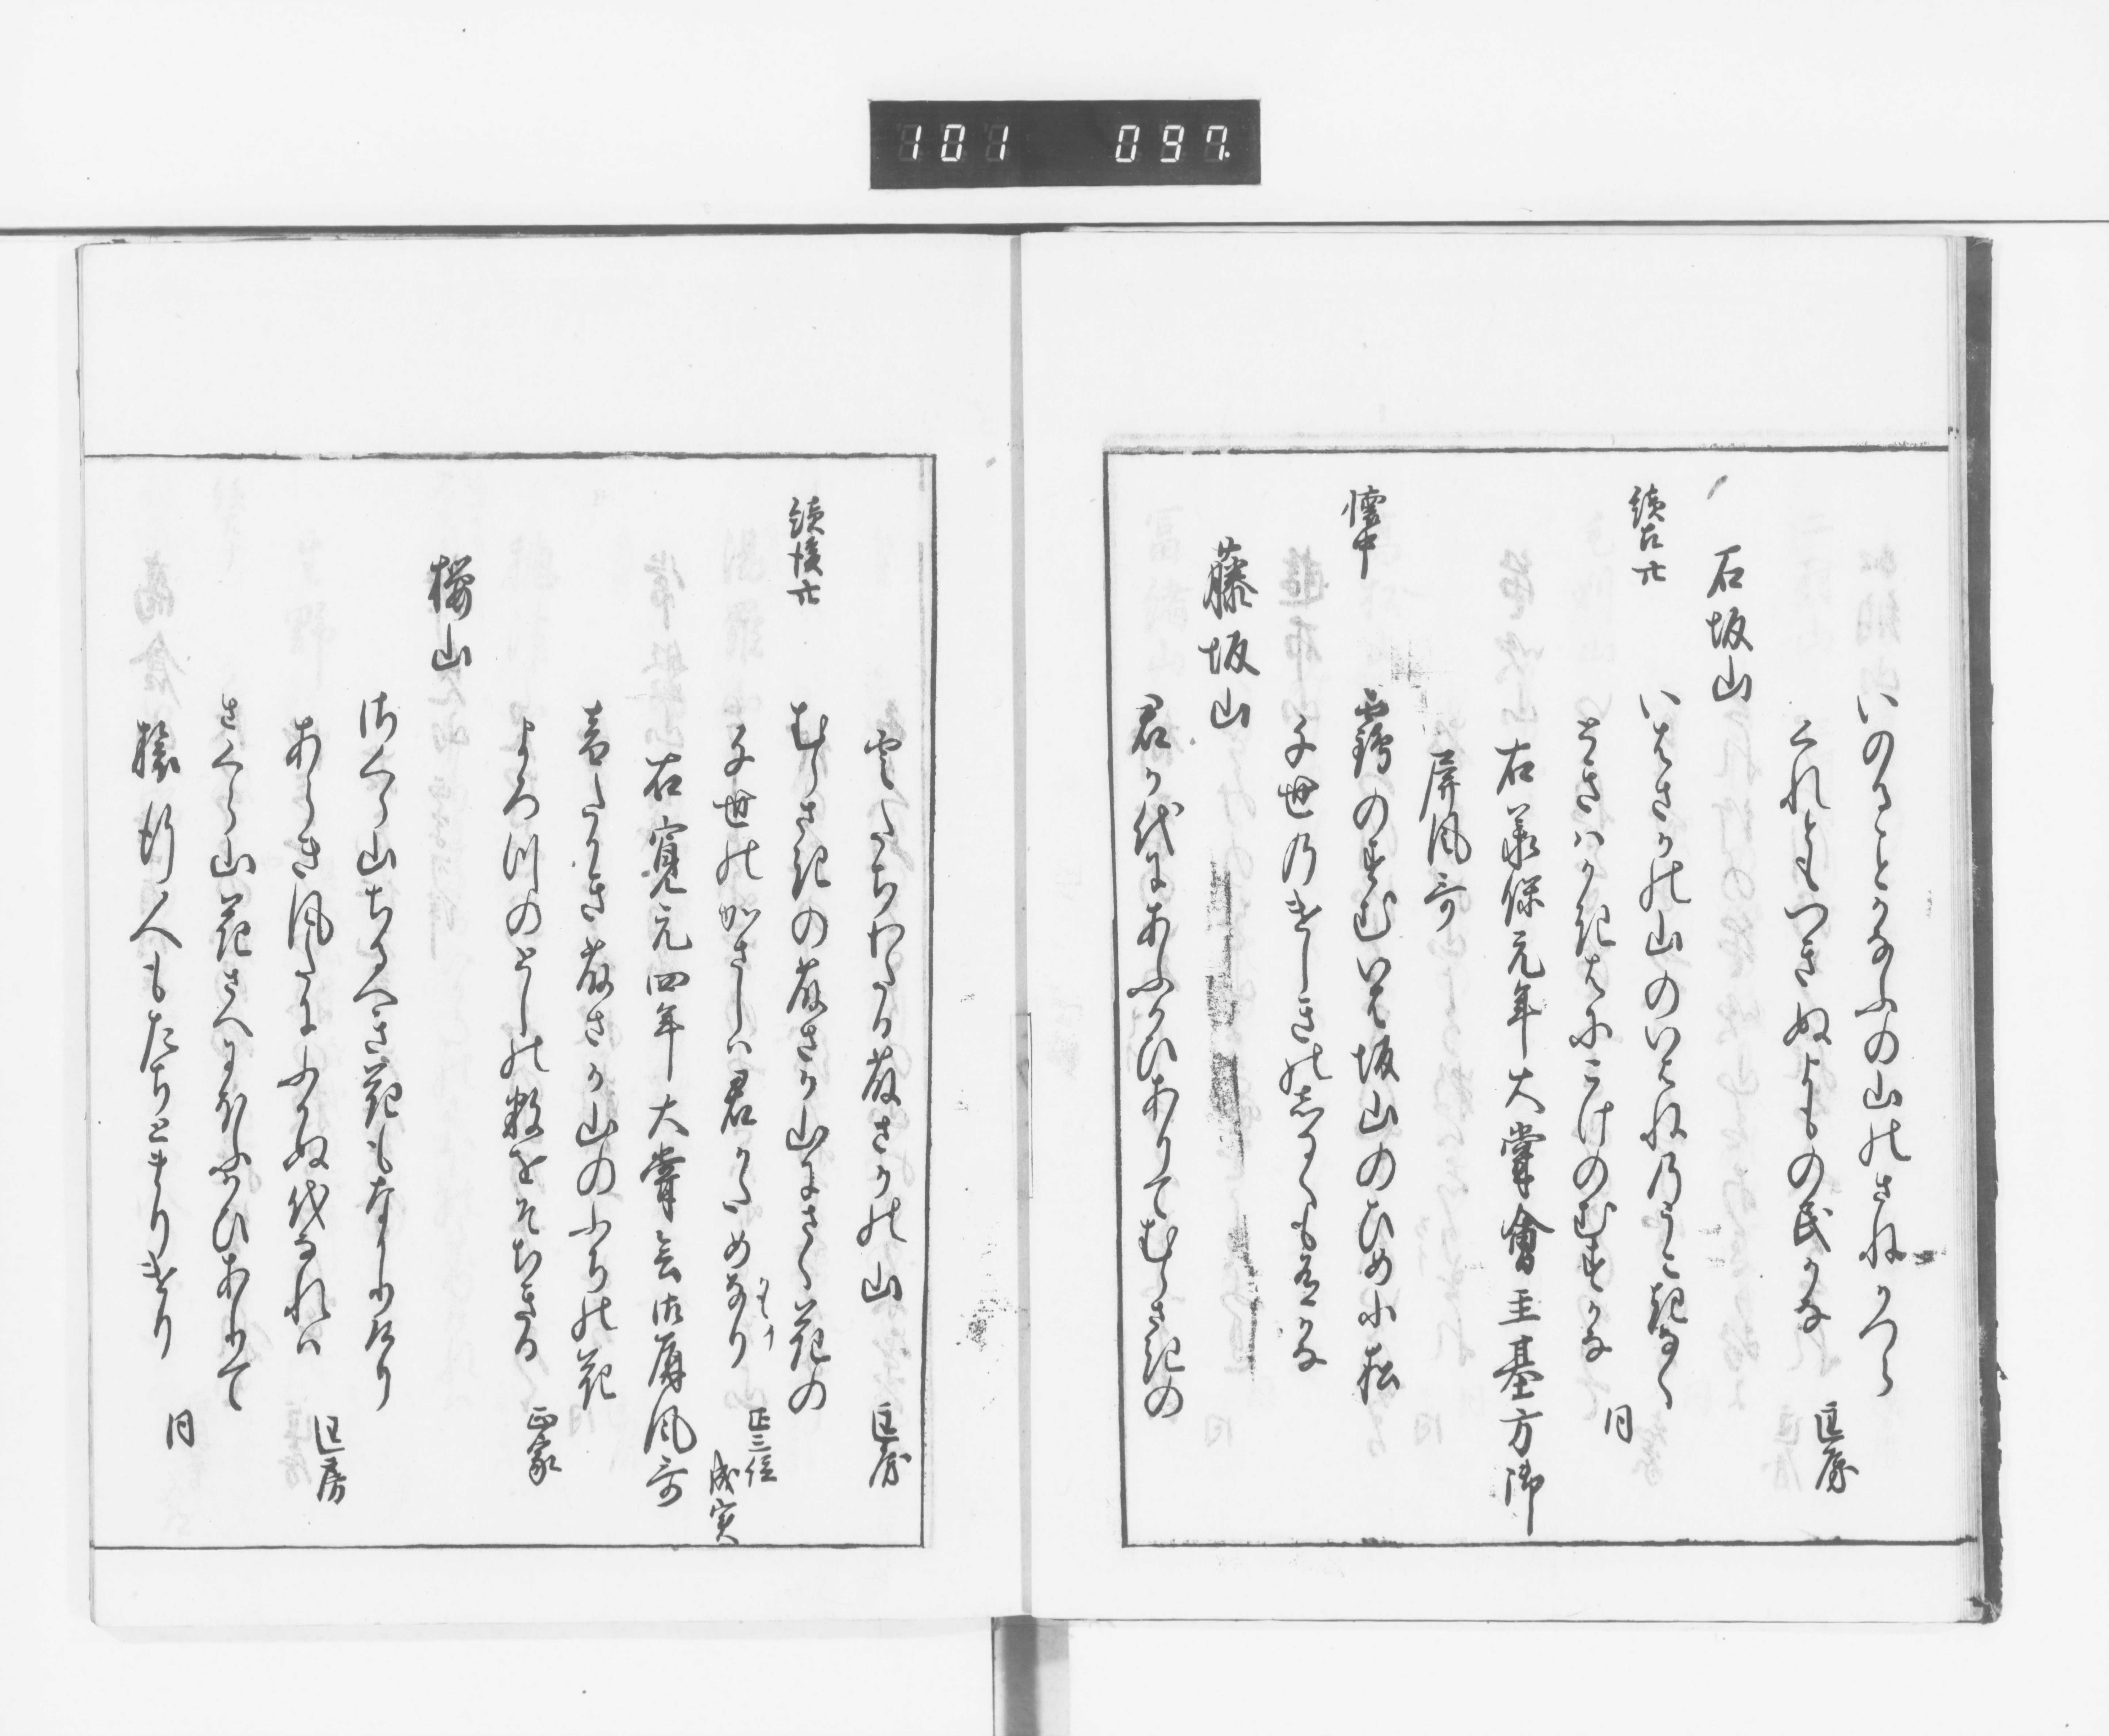 101 097
いのることかなふの山のさねかつら
くれともつきぬよもの民かな 匡房
石坂山
續古廿 いはさかの山のいはねのうこきなく
ときはかきはにこけのむすかな 同
右承保元年大嘗會主基方御
屏風哥
懐中 霜のすむいは坂山のひめ小松
千世のけしきのしるくも有かな
藤坂山
君か代にあふかひありてむらさきの
雲たちわたる藤さかの山 匡房
續後廿 むらさきの藤さか山にさく花の
千世のかさしは君かためなり 正三位成実
右寛元四年大嘗会御屏風哥
音たかき藤さか山のふちの花
よろつのとしの数をそちきる 正家
桜山
さくら山ちるへき花もなかりけり
あらき風たにふかぬ代なれは 匡房
さくら山花さへにほふかひありて
旅行人もたちとまりけり 同